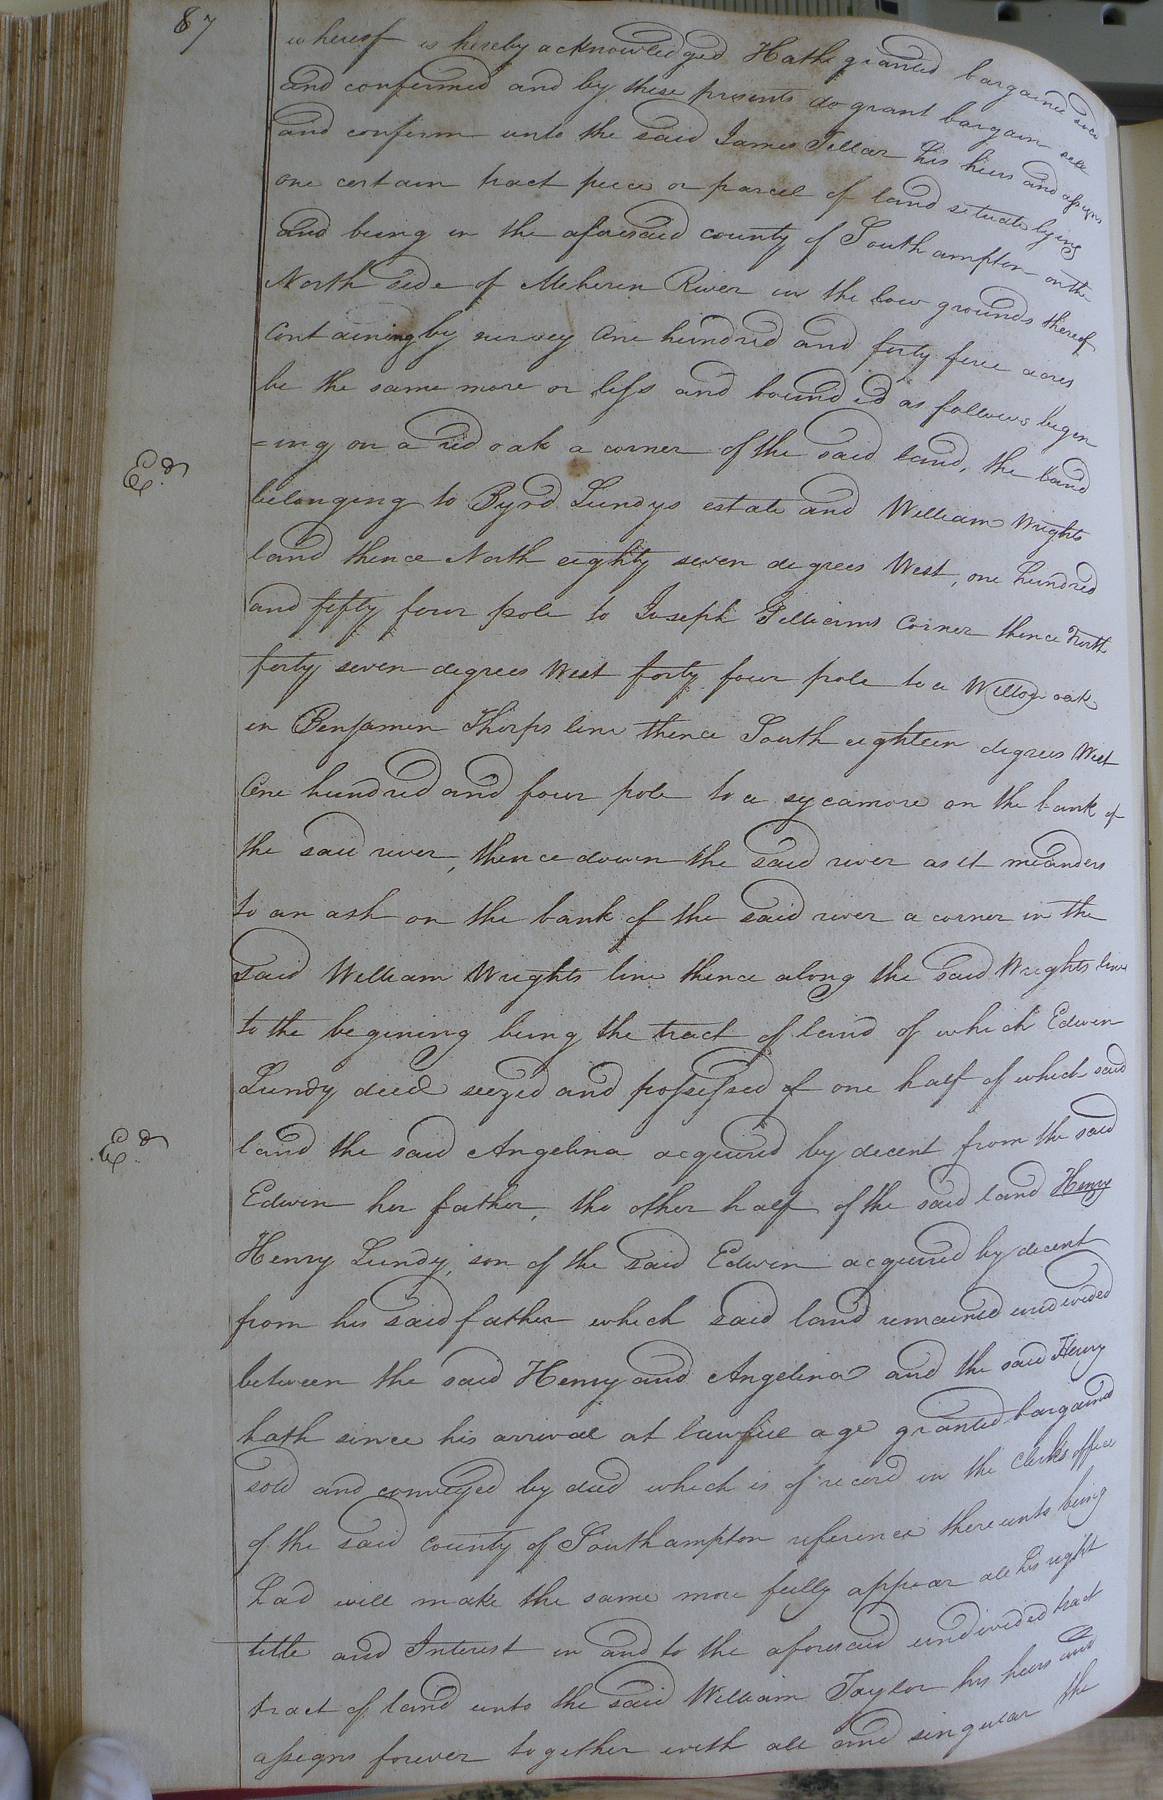 87
whereof is hereby acknowledged Hath granted bargained sold
and confirmed and by these presents do grant bargain sell
and confirm unto the said James Tellar his heirs and assigns
one certain tract piece or parcel of land situate lying
and being in the aforesaid county of Southampton on the
North side of Meherin River in the low grounds thereof
Containing by survey One hundred and forty five acres
be the same more or less and bounded as follows begin
=ing on a red oak a corner of the said land, the land
Ex.d
belonging to Byrd Lundys estate and William Wrights
land thence North eighty seven degrees West, one hundred
and fifty four pole to Joseph Gilliams Corner thence North
forty seven degrees West forty four pole to a Willow oak
in Benjamin Thorps line thence South eighteen degrees West
One hundred and four pole to a sycamore on the bank of
the said river, thence down the said river as it meanders
to an ash on the bank of the said river a corner in the
said William Wrights line thence along the said Wrights line
to the begining being the tract of land of which Edwin
Lundy died seized and possessed of one half of which said
Ex.d
land the said Angelina acquired by decent from the said
Edwin her father, the other half of the said land Henry
Henry Lundy, son of the said Edwin acquired by decent
from his said father which said land remained undivided
between the said Henry and Angelina and the said Henry
hath since his arrival at lawful age granted bargained
sold and conveyed by deed which is of record in the Clerks office
of the said county of Southampton reference thereunto being
had will make the same more fully appear all his right
title and Interest in and to the aforesaid undivided tract
tract of land unto the said William Taylor his heirs and
assigns forever together with all and singular the